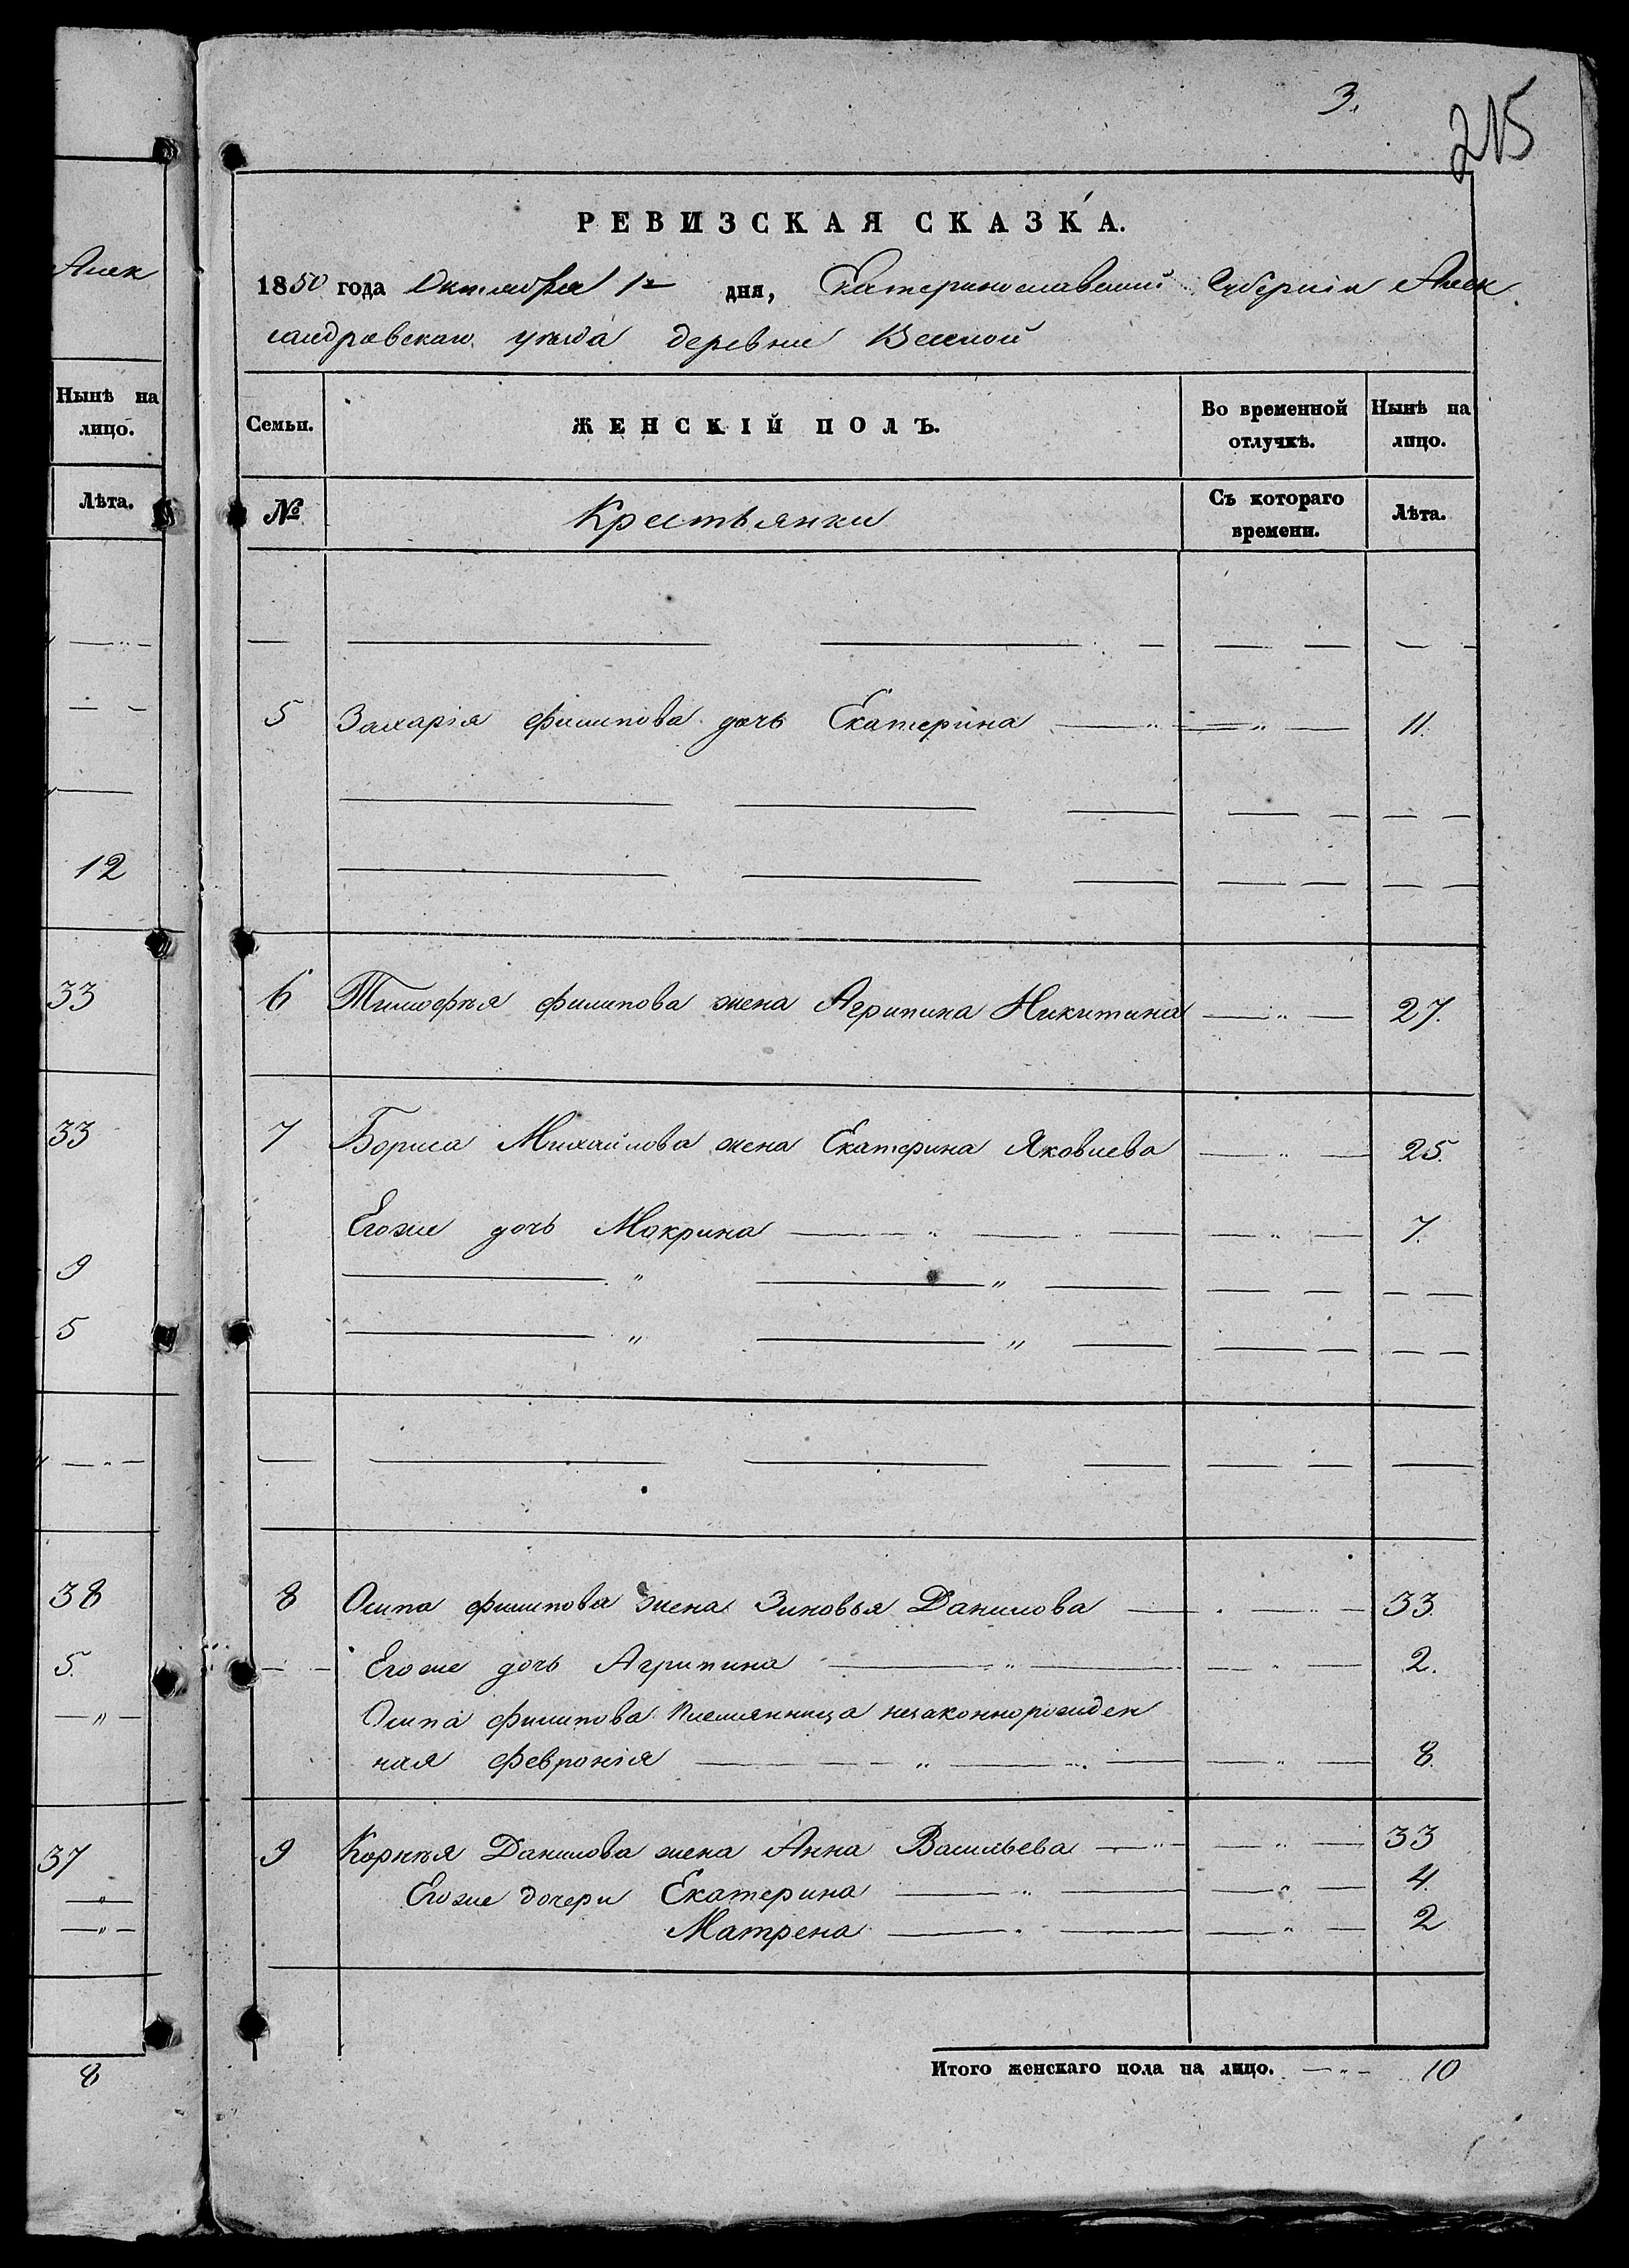 3.
215
РЕВИЗСКАЯ СКАЗКА.
1850 года Октября 1го дня, Екатеринославской Губернии Алек
сандровскаго уезда деревни Веселой
Семьи. ЖЕНСКІЙ ПОЛЪ. Во временной отлучкѣ. Нынѣ на лицо.
№ Крестьянки Съ котораго времени. Лѣта.
5 Захарія филипова дочь Екатерина 11.
6 Тимофѣя филипова жена Агрипина Никитина 27.
7 Бориса Михайлова жена Екатерина Яковлева 25.
Егоже дочь Макрина 7.
8 Осипа филипова жена Зиновья Данилова 33.
Егоже дочь Агрипина 2.
Осипа филипова племянница незаконнорожден
ная феврония 8.
9 Корнѣя Данилова жена Анна Васильева 33
Егоже дочери Екатерина 4.
Матрена 2
Итого женскаго пола на лицо. 10
Алек
Нынѣ на
лицо.
Лѣта.
12
33
33
9
5
38
5.
37
8